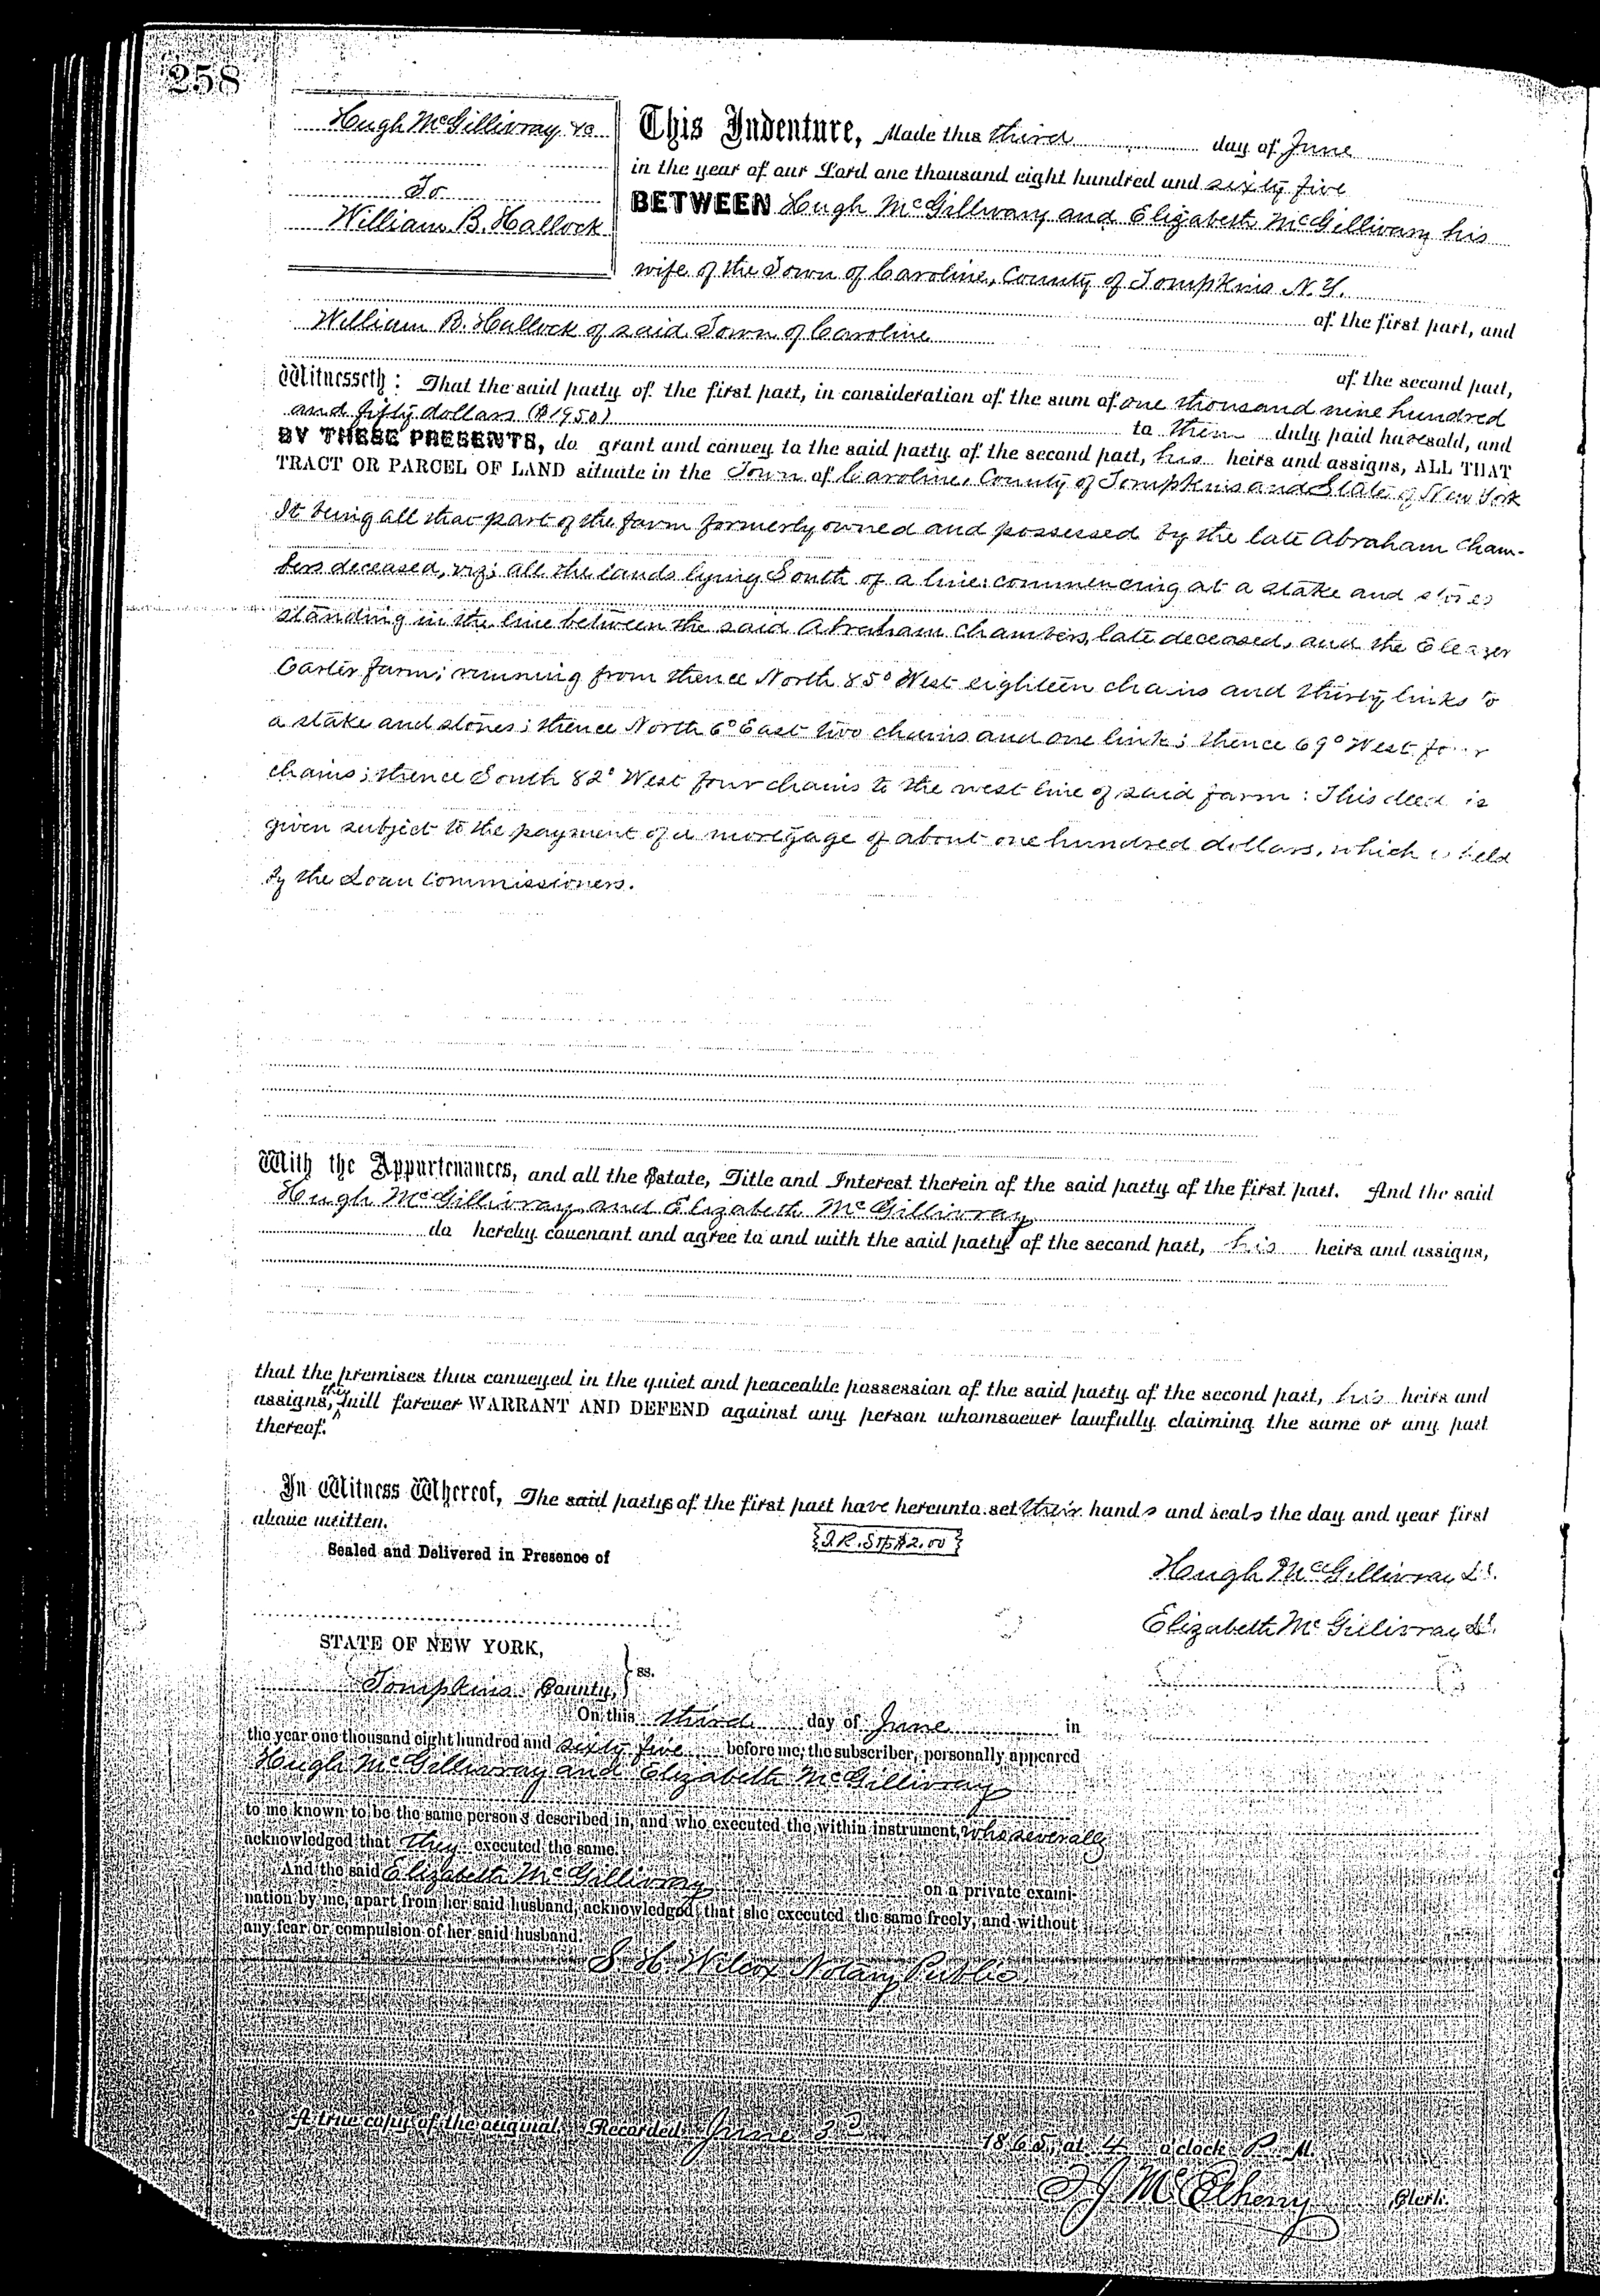 258
Hugh McGillivray &c
To
William B. Hallock
This Indenture, Made this third day of June
in the year of our Lord one thousand eight hundred and sixty five
BETWEEN Hugh McGillivary and Elizabeth McGillivary his
wife of the Town of Caroline, County of Tompkins N.Y.
of the first part, and
William B. Hallock of said Town of Caroline
of the second part,
Witnesseth: That the said party of the first part, in consideration of the sum of one thousand nine hundred
and fifty dollars ($1950) to them duly paid have sold, and
BY THESE PRESENTS, do grant and convey to the said party of the second part, his heirs and assigns, ALL THAT
TRACT OR PARCEL OF LAND situate in the Town of Caroline, County of Tompkins and State of New York
It being all that part of the farm formerly owned and possessed by the late Abraham Cham-
bers deceased, viz; all the lands lying South of a line: commencing at a stake and stones
standing in the line between the said Abraham Chambers, late deceased, and the Eleazer
Carter farm; running from thence North 85° West eighteen chains and thirty links to
a stake and stones; thence North 6° East two chains and one link; thence 69° West four
chains; thence South 82° West four chains to the west line of said farm: This deed is
given subject to the payment of a mortgage of about one hundred dollars, which is held
by the Loan Commissioners.
With the Appurtenances, and all the Estate, Title and Interest therein of the said party of the first part. And the said
Hugh McGillivray and Elizabeth McGillivray
do hereby covenant and agree to and with the said party of the second part, his heirs and assigns,
that the premises thus conveyed in the quiet and peaceable possession of the said party of the second part, his heirs and
assigns, they will forever WARRANT AND DEFEND against any person whomsoever lawfully claiming the same or any part
thereof.
In Witness Whereof, The said partys of the first part have hereunto set their hands and seals the day and year first
above written.
Sealed and Delivered in Presence of
I.R. Stp $2.00
Hugh McGillivray L.S.
Elizabeth McGillivray L.S.
STATE OF NEW YORK,
Tompkins County, } ss.
On this third day of June in
the year one thousand eight hundred and sixty five before me, the subscriber, personally appeared
Hugh McGillivray and Elizabeth McGillivray
to me known to be the same persons described in, and who executed the within instrument, who severally
acknowledged that they executed the same.
And the said Elizabeth McGillivray on a private exami-
nation by me, apart from her said husband, acknowledged that she executed the same freely, and without
any fear or compulsion of her said husband.
S. H. Wilcox Notary Public
A true copy of the original. Recorded June 3d 1865, at 4 o'clock P. M.
T J McElheny Clerk.